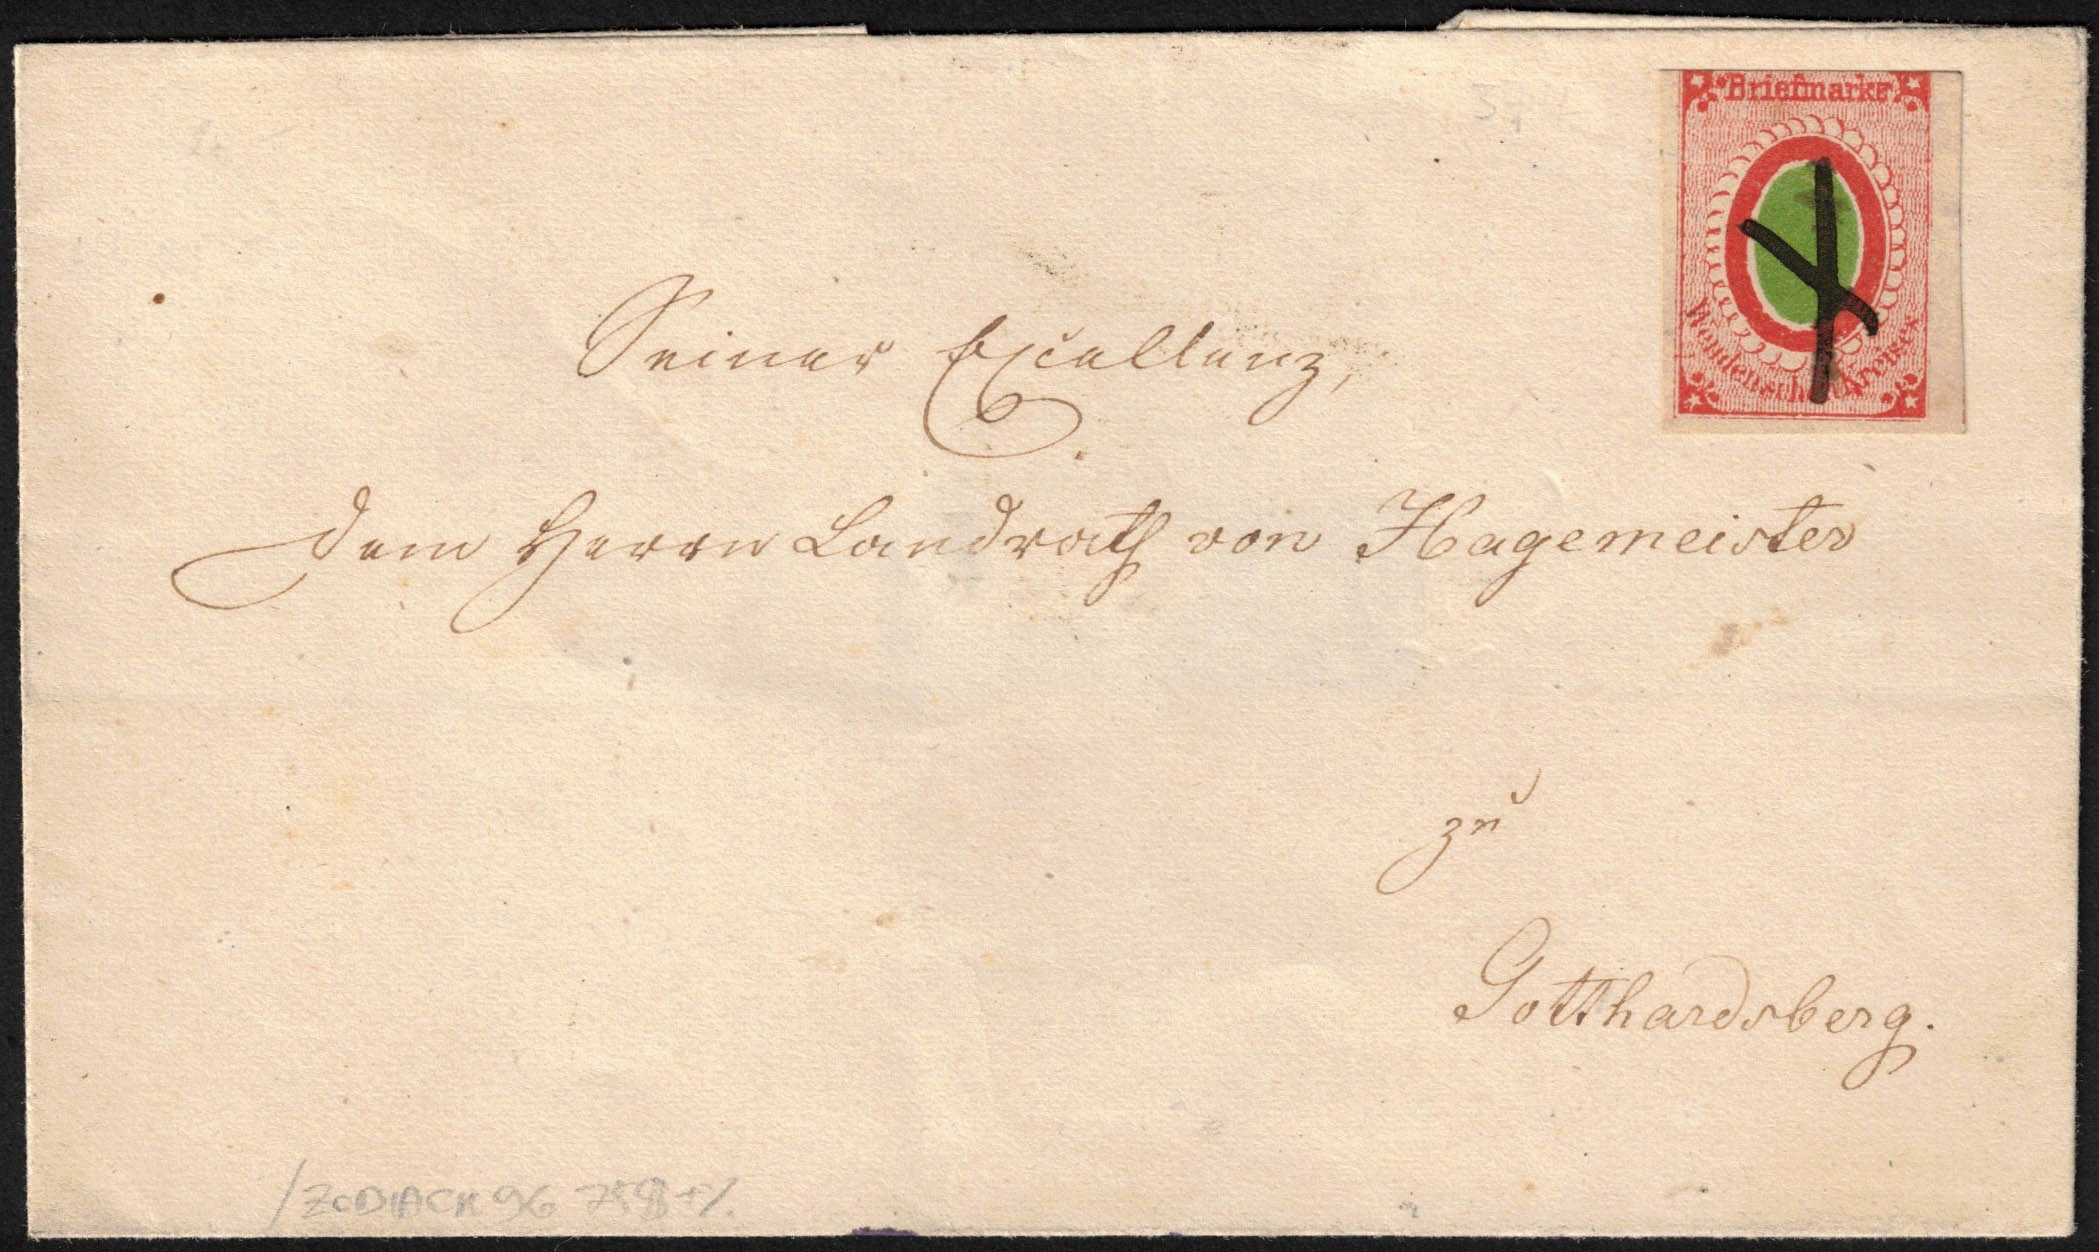 Briefmarke
Wendenschen Kreises
Seiner Excellenz,
dem Herrn Landrath von Hagemeister
zu
Gotthardsberg.
/ZODIACK 96